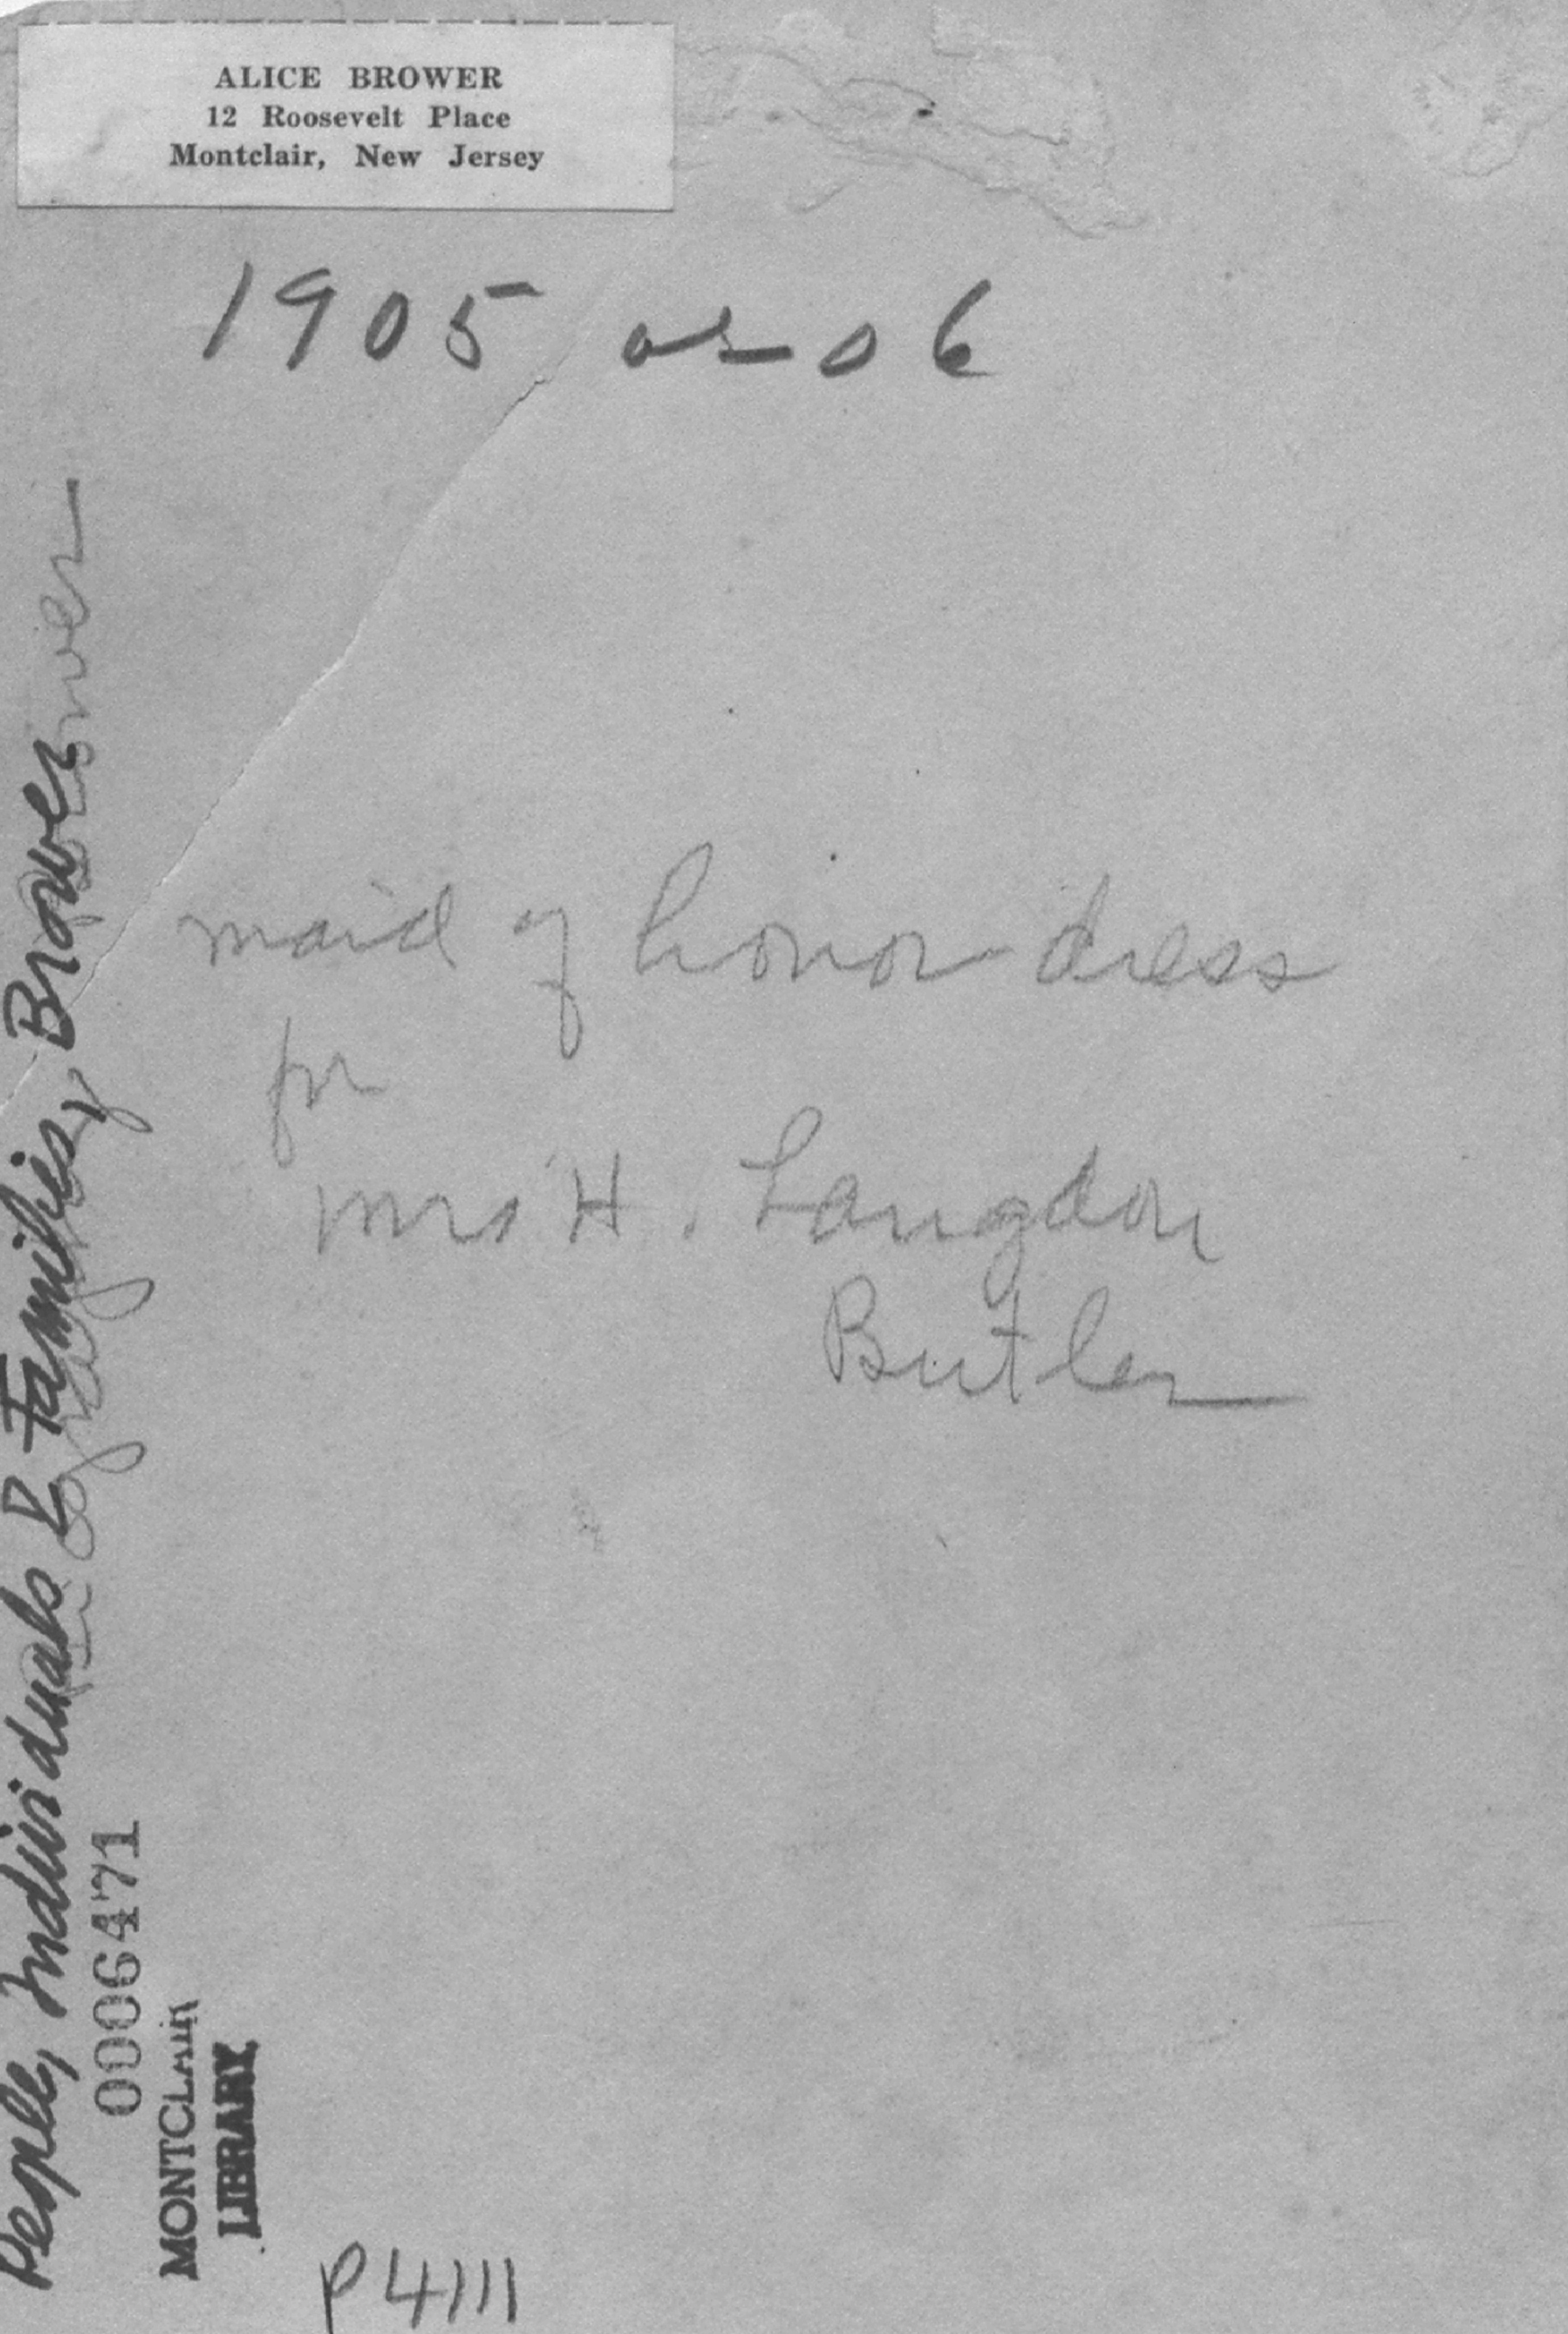 ALICE BROWER
12 Roosevelt Place
Montclair, New Jersey
1905 or 06
maid of honor dress
for
Mrs H. Langdon
Butler
People, Individuals & Families, Brower
0006471
MONTCLAIR
LIBRARY
P4111